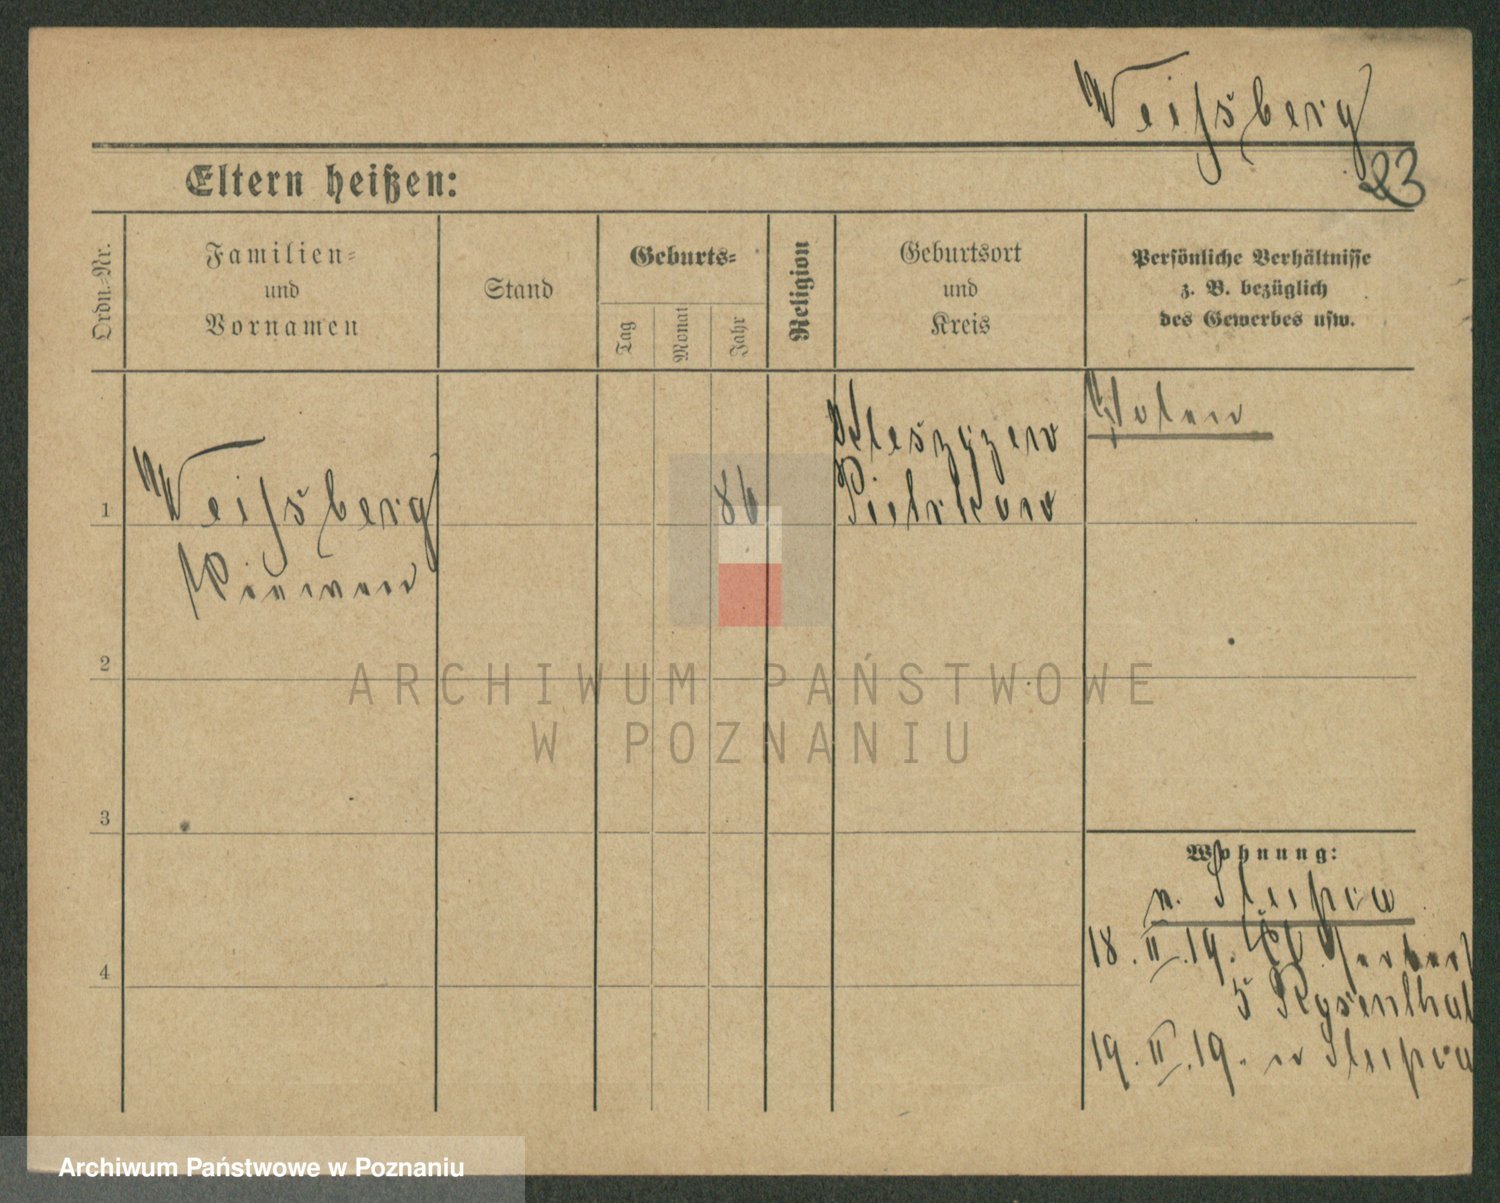 Weißberg
23
Eltern heißen:
Ordn.-Nr.
Familien-
und
Vornamen
Stand
Geburts-
Tag
Monat
Jahr
Religion
Geburtsort
und
Kreis
Persönliche Verhältnisse
z. B. bezüglich
des Gewerbes usw.
1
Weißberg
86
Pleszyzew
Pietrkow
Polen
2
3
4
Wohnung:
n. Slupia
18. II. 19.
5 Rosenthal
19. II. 19. n Slupia
ARCHIWUM PAŃSTWOWE
W POZNANIU
Archiwum Państwowe w Poznaniu